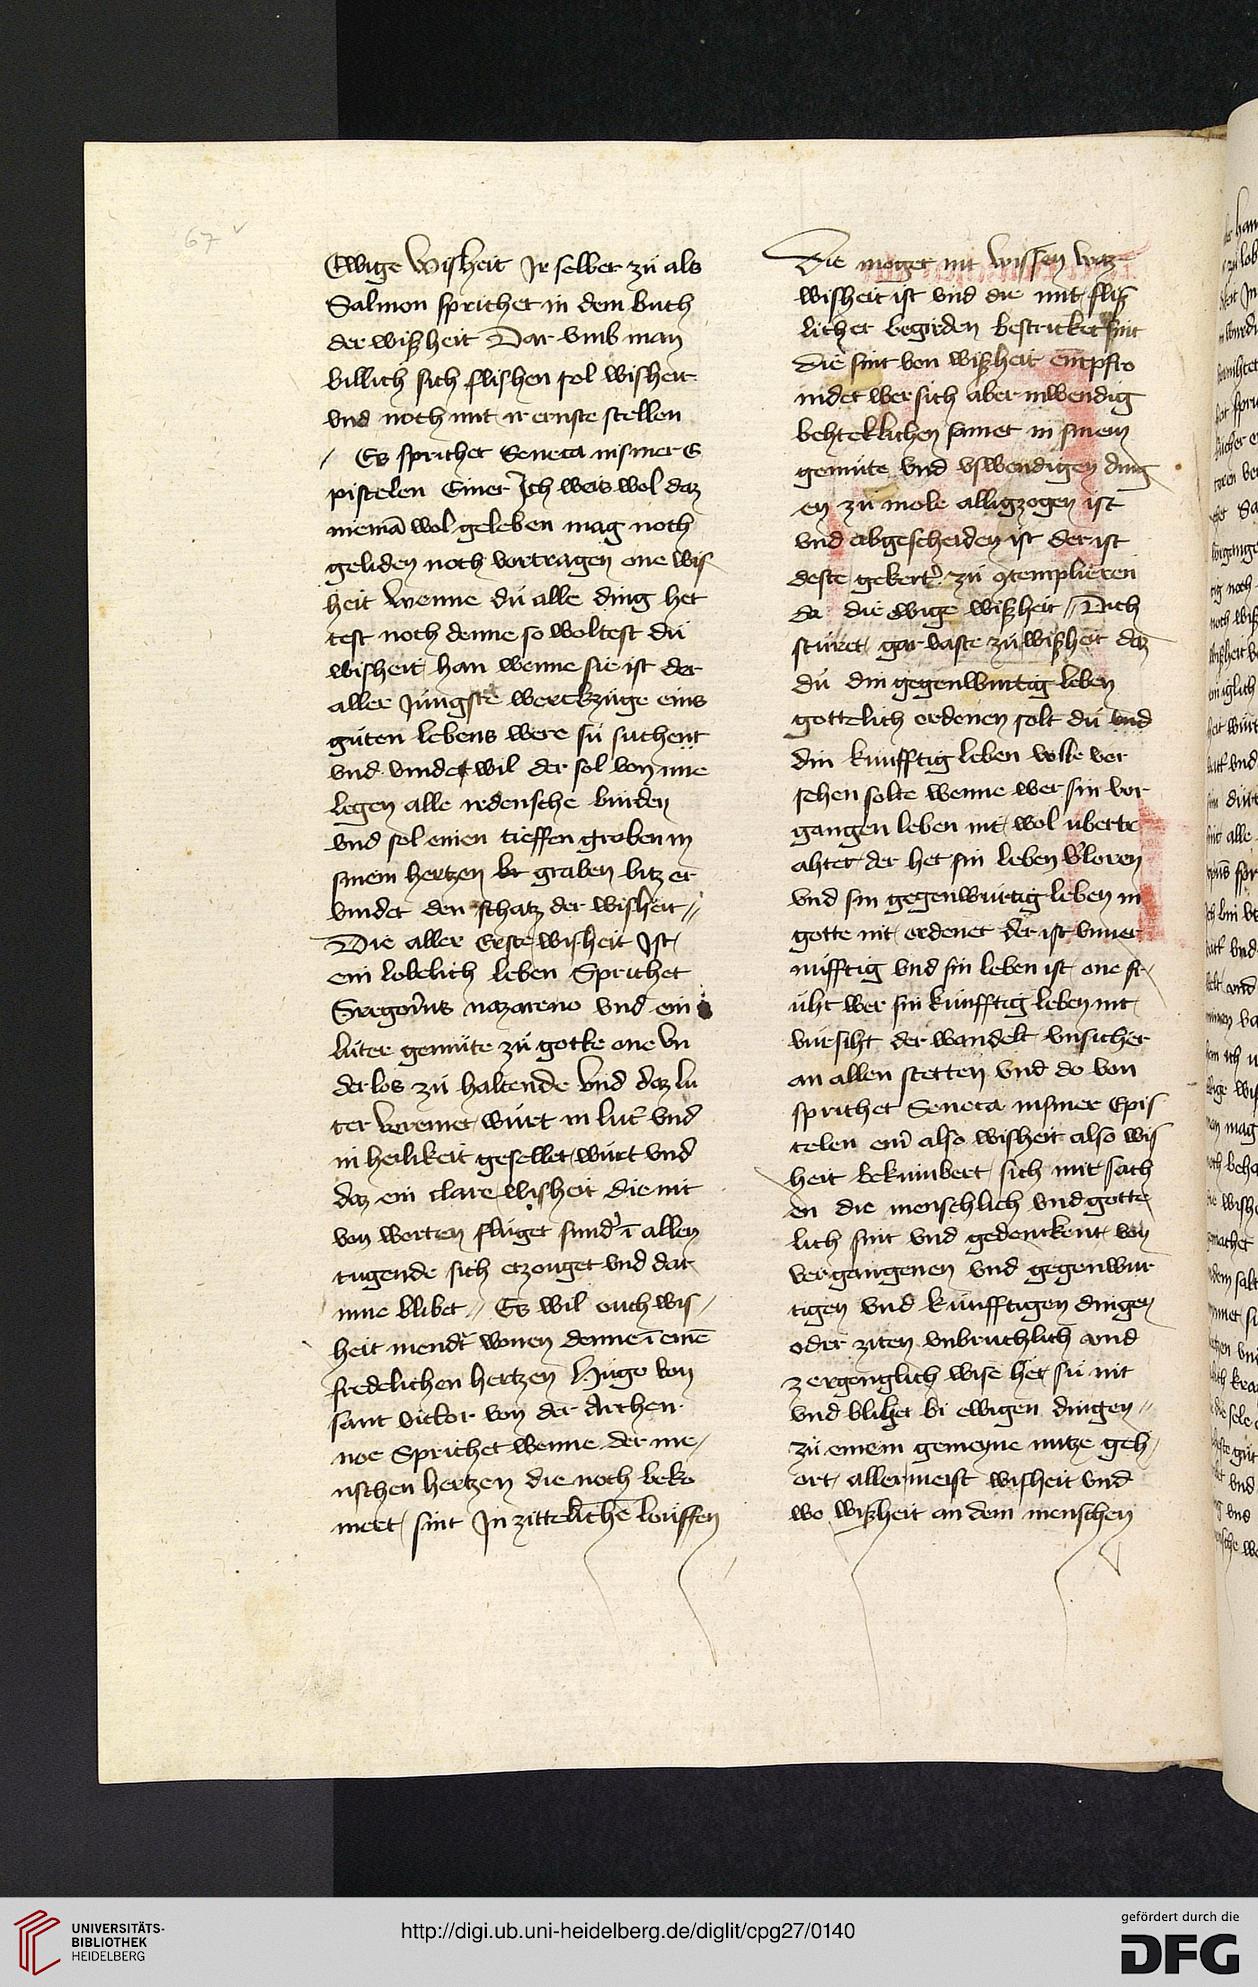 67 v
Ewige Wisheit Jr selber zü als
Salmon sprichet in dem buch
der wißheit Dar vmb man
billich sich flishen sol wisheit
vnd noch mit ir ernste stellen
Es sprichet Seneca in siner E
pistelen Einer Ich weis wol daz
niemā wol geleben mag noch
geliden noch vortragen one wis
heit wenne dü alle ding het
test noch denne so woltest dü
wisheit han wenne sie ist der
aller Jüngste werckzüge eins
güten lebens were sü suchent
vnd vindet wil der sol von ime
legen alle irdensche bürden
vnd sol einen tieffen graben in
sinem hertzen graben bitz er
vindet den schatz der wisheit //
Die aller Erste wisheit Jst
ein lobelich leben Sprichet
Gregorius nazareno vnd ein
luter gemüte zü gotte one vn
derlos zü haltende vnd daz lu
ter vereinet würt in lut' vnd
in heilikeit gesellet würt vnd
daz ein clare wisheit die nit
von worten flüget sund' ī allen
tugende sich erzouget vnd dar
inne blibet // Es wil ouch wis
heit niendt' wonen denne ī einē
fredelichen hertzen Hugo von
sant victor von der Archen
noe Sprichet wenne der me
nschen hertzen die noch beko
mert sint Jn zittelichē louffen
Die moget nit wissen waz
wisheit ist vnd die mit fliß
licher begirden bestricket sint
die sint von wißheit empfro
mdet wer sich aber inwendig
behteklichen samet in sinem
gemüte vnd vswendigen ding
en zü mole alligzogen ist
vnd abgescheiden ist der ist
deste gekert' zü 9templieren
die ewige wißheit // Dich
stüret gar vaste zü wißheit daz
dü din gegenwurtig leben
gottelich ordenen solt dü vnd
din künfftig leben vor
sehen solte wenne wer sin vor
gangen leben nit wol übertr
ahtet der het sin leben v'loren
vnd sin gegenwürtig leben in
gotte nit ordenet der ist vnuer
nüfftig vnd sin leben ist one fr
üht wer sin künfftig leben nit
vürsiht der wandelt vnsicher
an allen stetten vnd do von
sprichet Seneca in siner Epis
telen ein' also wisheit also wis
heit bekümbert sich mit sach
en die menschlich vnd gotte
lich sint vnd gedenckent von
vergangenen vnd gegenwür
tigen vnd künfftigen dingen
oder ziten vnbrüchlich
zergenglich wise het sü nit
vnd blibet bi ewigen dingen //
zü einem gemeyne nutze geh
ort allermeist wisheit vnd
wo wißheit an dem menschen
UNIVERSITÄTS-
BIBLIOTHEK
HEIDELBERG
http://digi.ub.uni-heidelberg.de/diglit/cpg27/0140
gefördert durch die
DFG